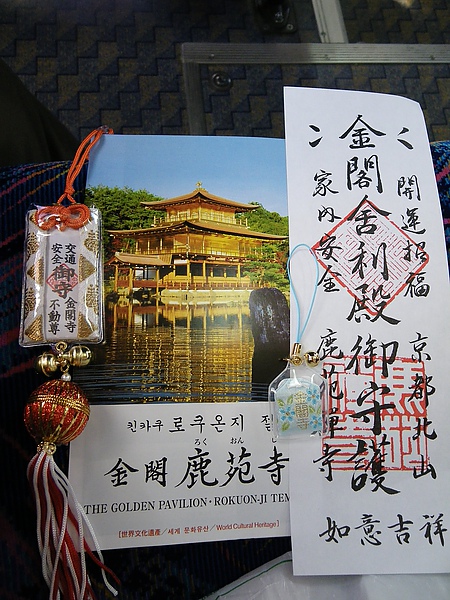 交通安全
御守
金閣寺
不動尊
킨카쿠 로쿠온지
ろく おん
金閣 鹿苑寺
THE GOLDEN PAVILION・ROKUON-JI TEM
[世界文化遺産／세계 문화유산／World Cultural Heritage]
開運招福 京都北山
金閣舎利殿御守護
家内安全 鹿苑禅寺
如意吉祥
金閣寺